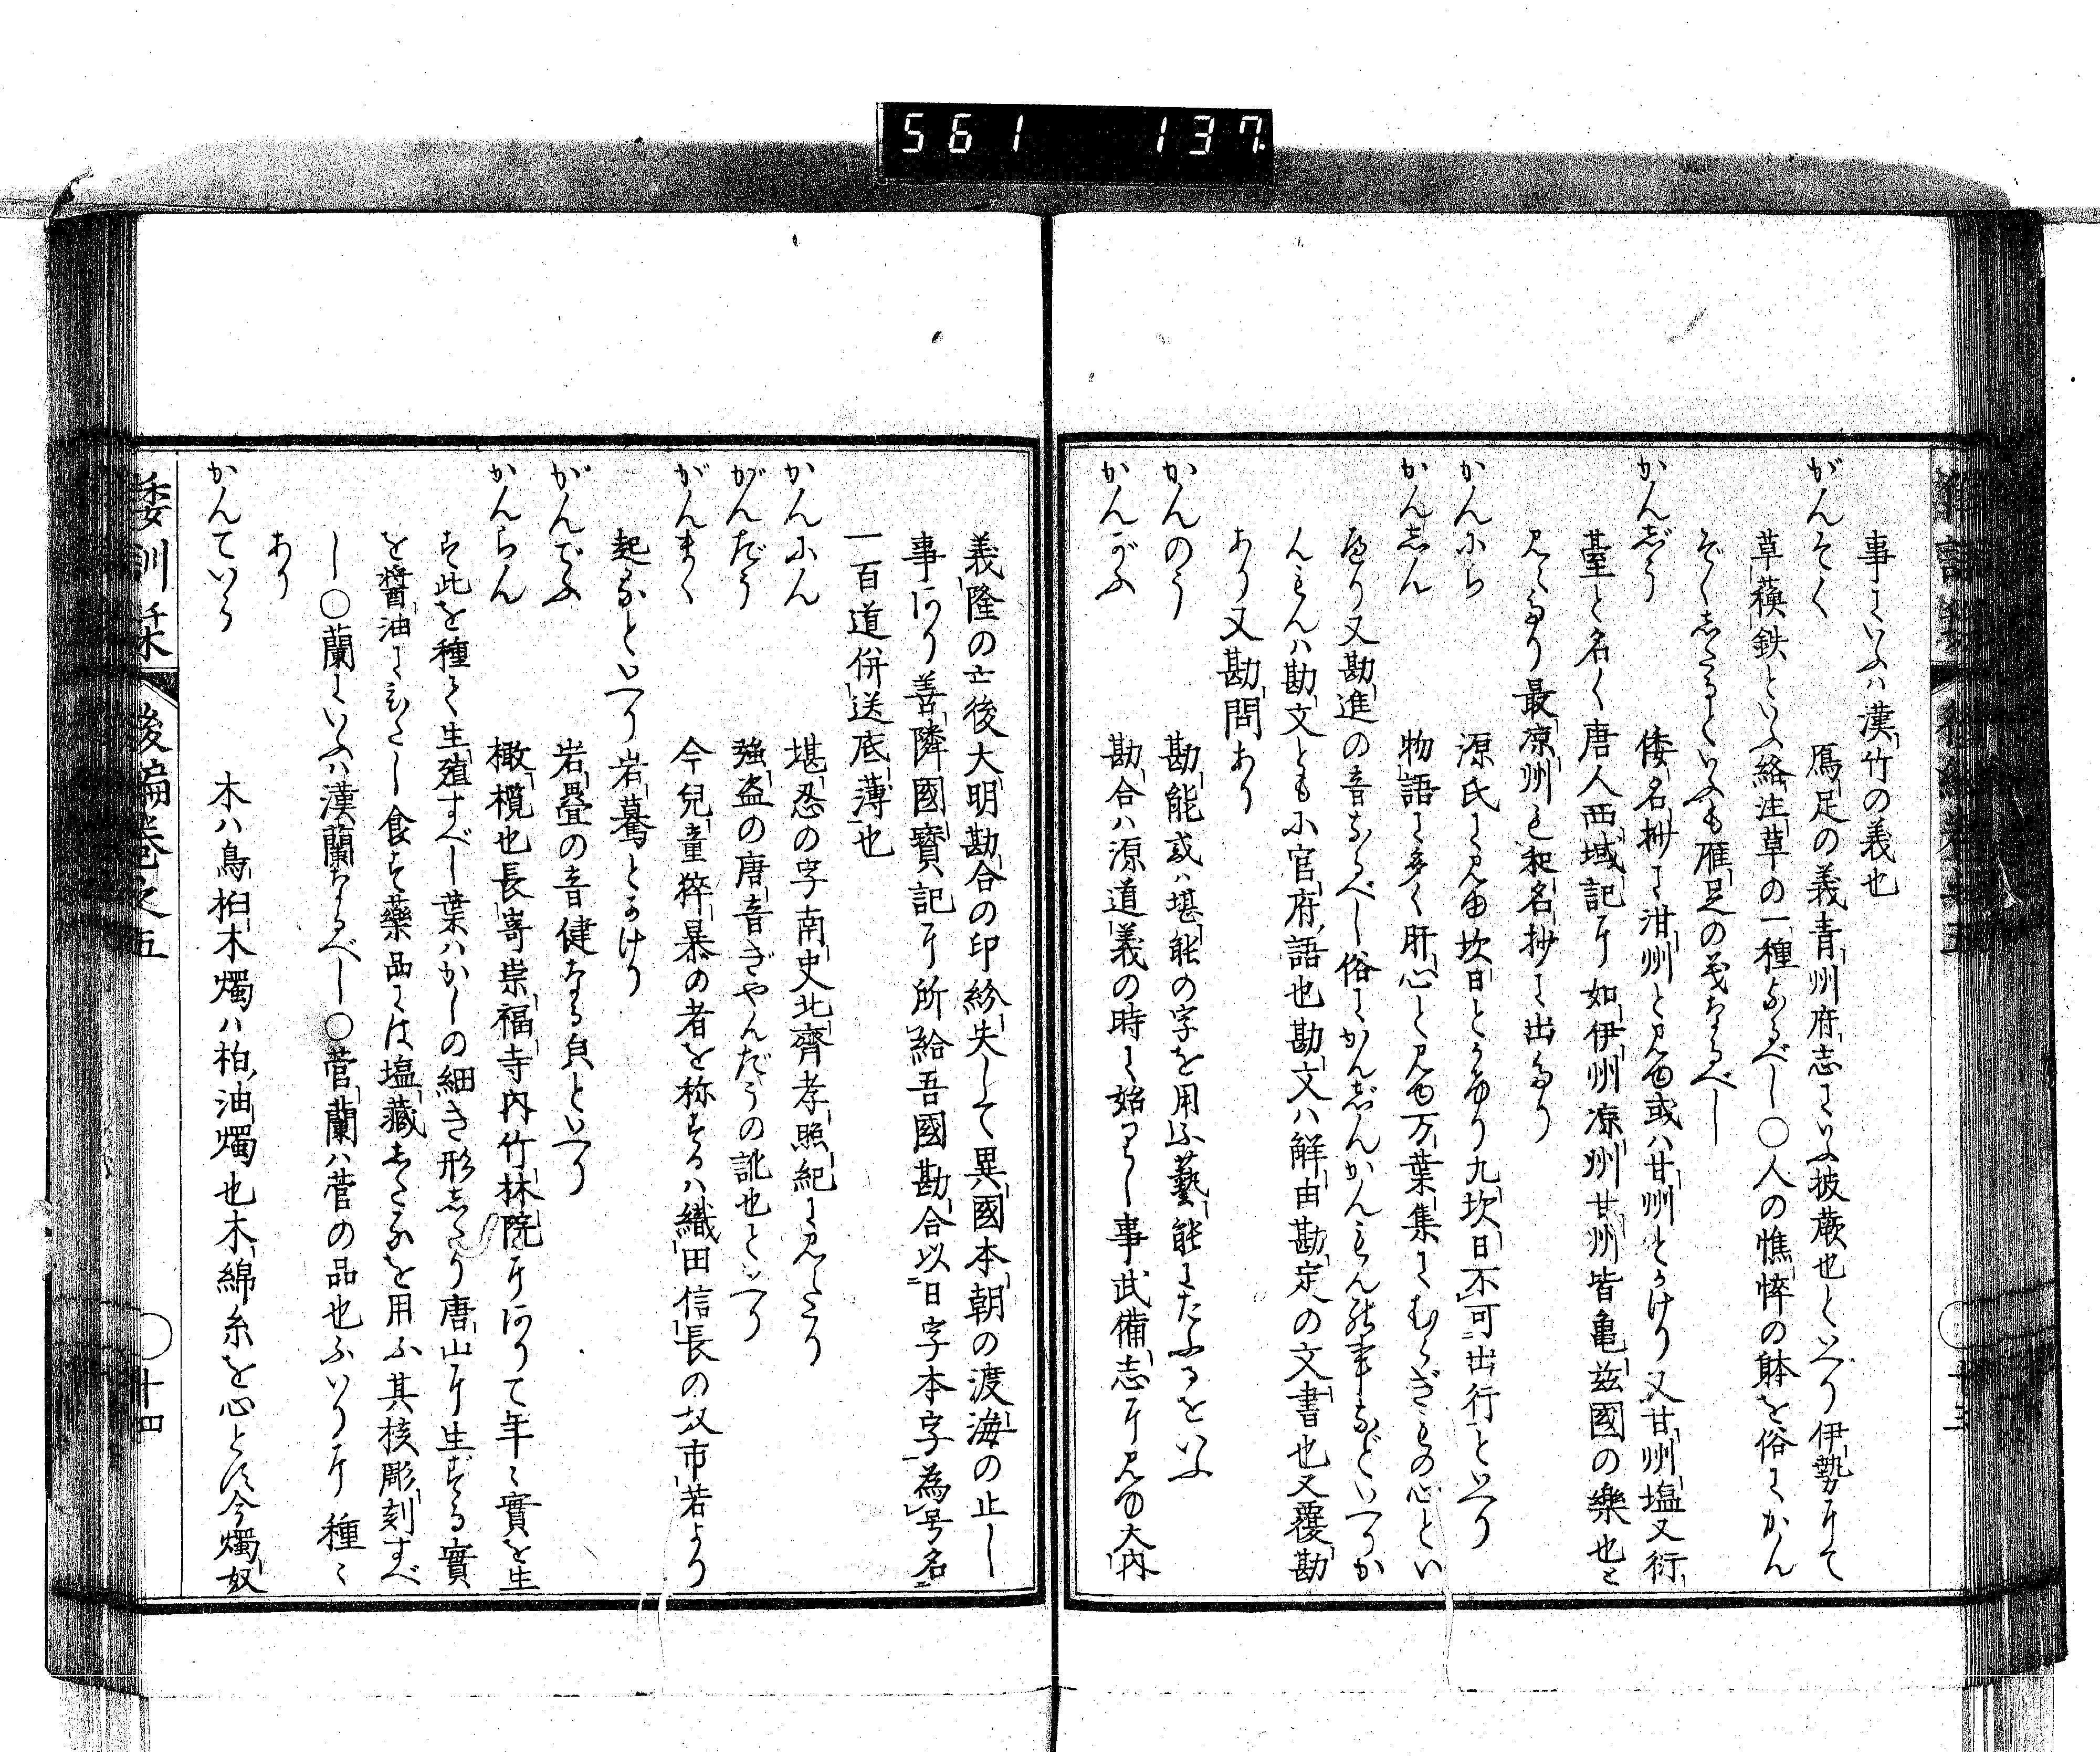 561 137
事にいふハ漢竹の義也
がんそく 鴈足の義青州府志にいふ披蕨也といへり伊勢にて
草蘓鉄といふ絡注草の一種なるべし〇人の憔悴の躰を俗にかん
ぞくしたるといふも雁足の義なるべし
かんじう 倭名抄に泔州と見ゆ或ハ甘州とかけり又甘州塩又衍
臺と名く唐人西域記に如伊州凉州甘州皆亀茲國の樂也と
見えたり最凉州も和名抄に出たり
かんにち 源氏に見ゆ坎日とかけり九坎日不可出行といへり
かんじん 物語に多く肝心と見ゆ万葉集にむらぎものの心とい
へり又勘進の音なるべし俗にかんじんかんもん能事などいへりか
んもんハ勘文とも小官府語也勘文ハ解由勘定の文書也又覆勘
あり又勘問あり
かんのう 勘能或ハ堪能の字を用ふ藝能にたふるをいふ
かんがふ 勘合ハ源道義の時に始りし事武備志に見ゆ大内
義隆の亡後大明勘合の印紛失して異國本朝の渡海の止し
事あり善隣國寳記に所給吾國勘合以日字本字為号名
一百道併送底薄也
かんにん 堪忍の字南史北齊孝照紀に見えたり
がんだう 強盗の唐音ぎやんだうの訛也といへり
がんまく 今兒童猝暴の者を称するハ織田信長の奴市若より
起るといへり岩驀とかけり
がんでふ 岩疊の音健なる皃といへり
かんらん 橄欖也長嵜崇福寺内竹林院にありて年々實を生
ず此を種て生殖すべし葉ハかしの細き形したり唐山に生ずる實
を醤油にひたし食す藥品にハ塩藏したるを用ふ其核彫刻すべ
し〇蘭にいふハ漢蘭なるべし〇菅蘭ハ菅の品也ふいりに種々
あり
かんていう 木ハ鳥桕木燭ハ桕油燭也木綿糸を心とす今燭奴
倭訓栞 後編巻之五 〇十四